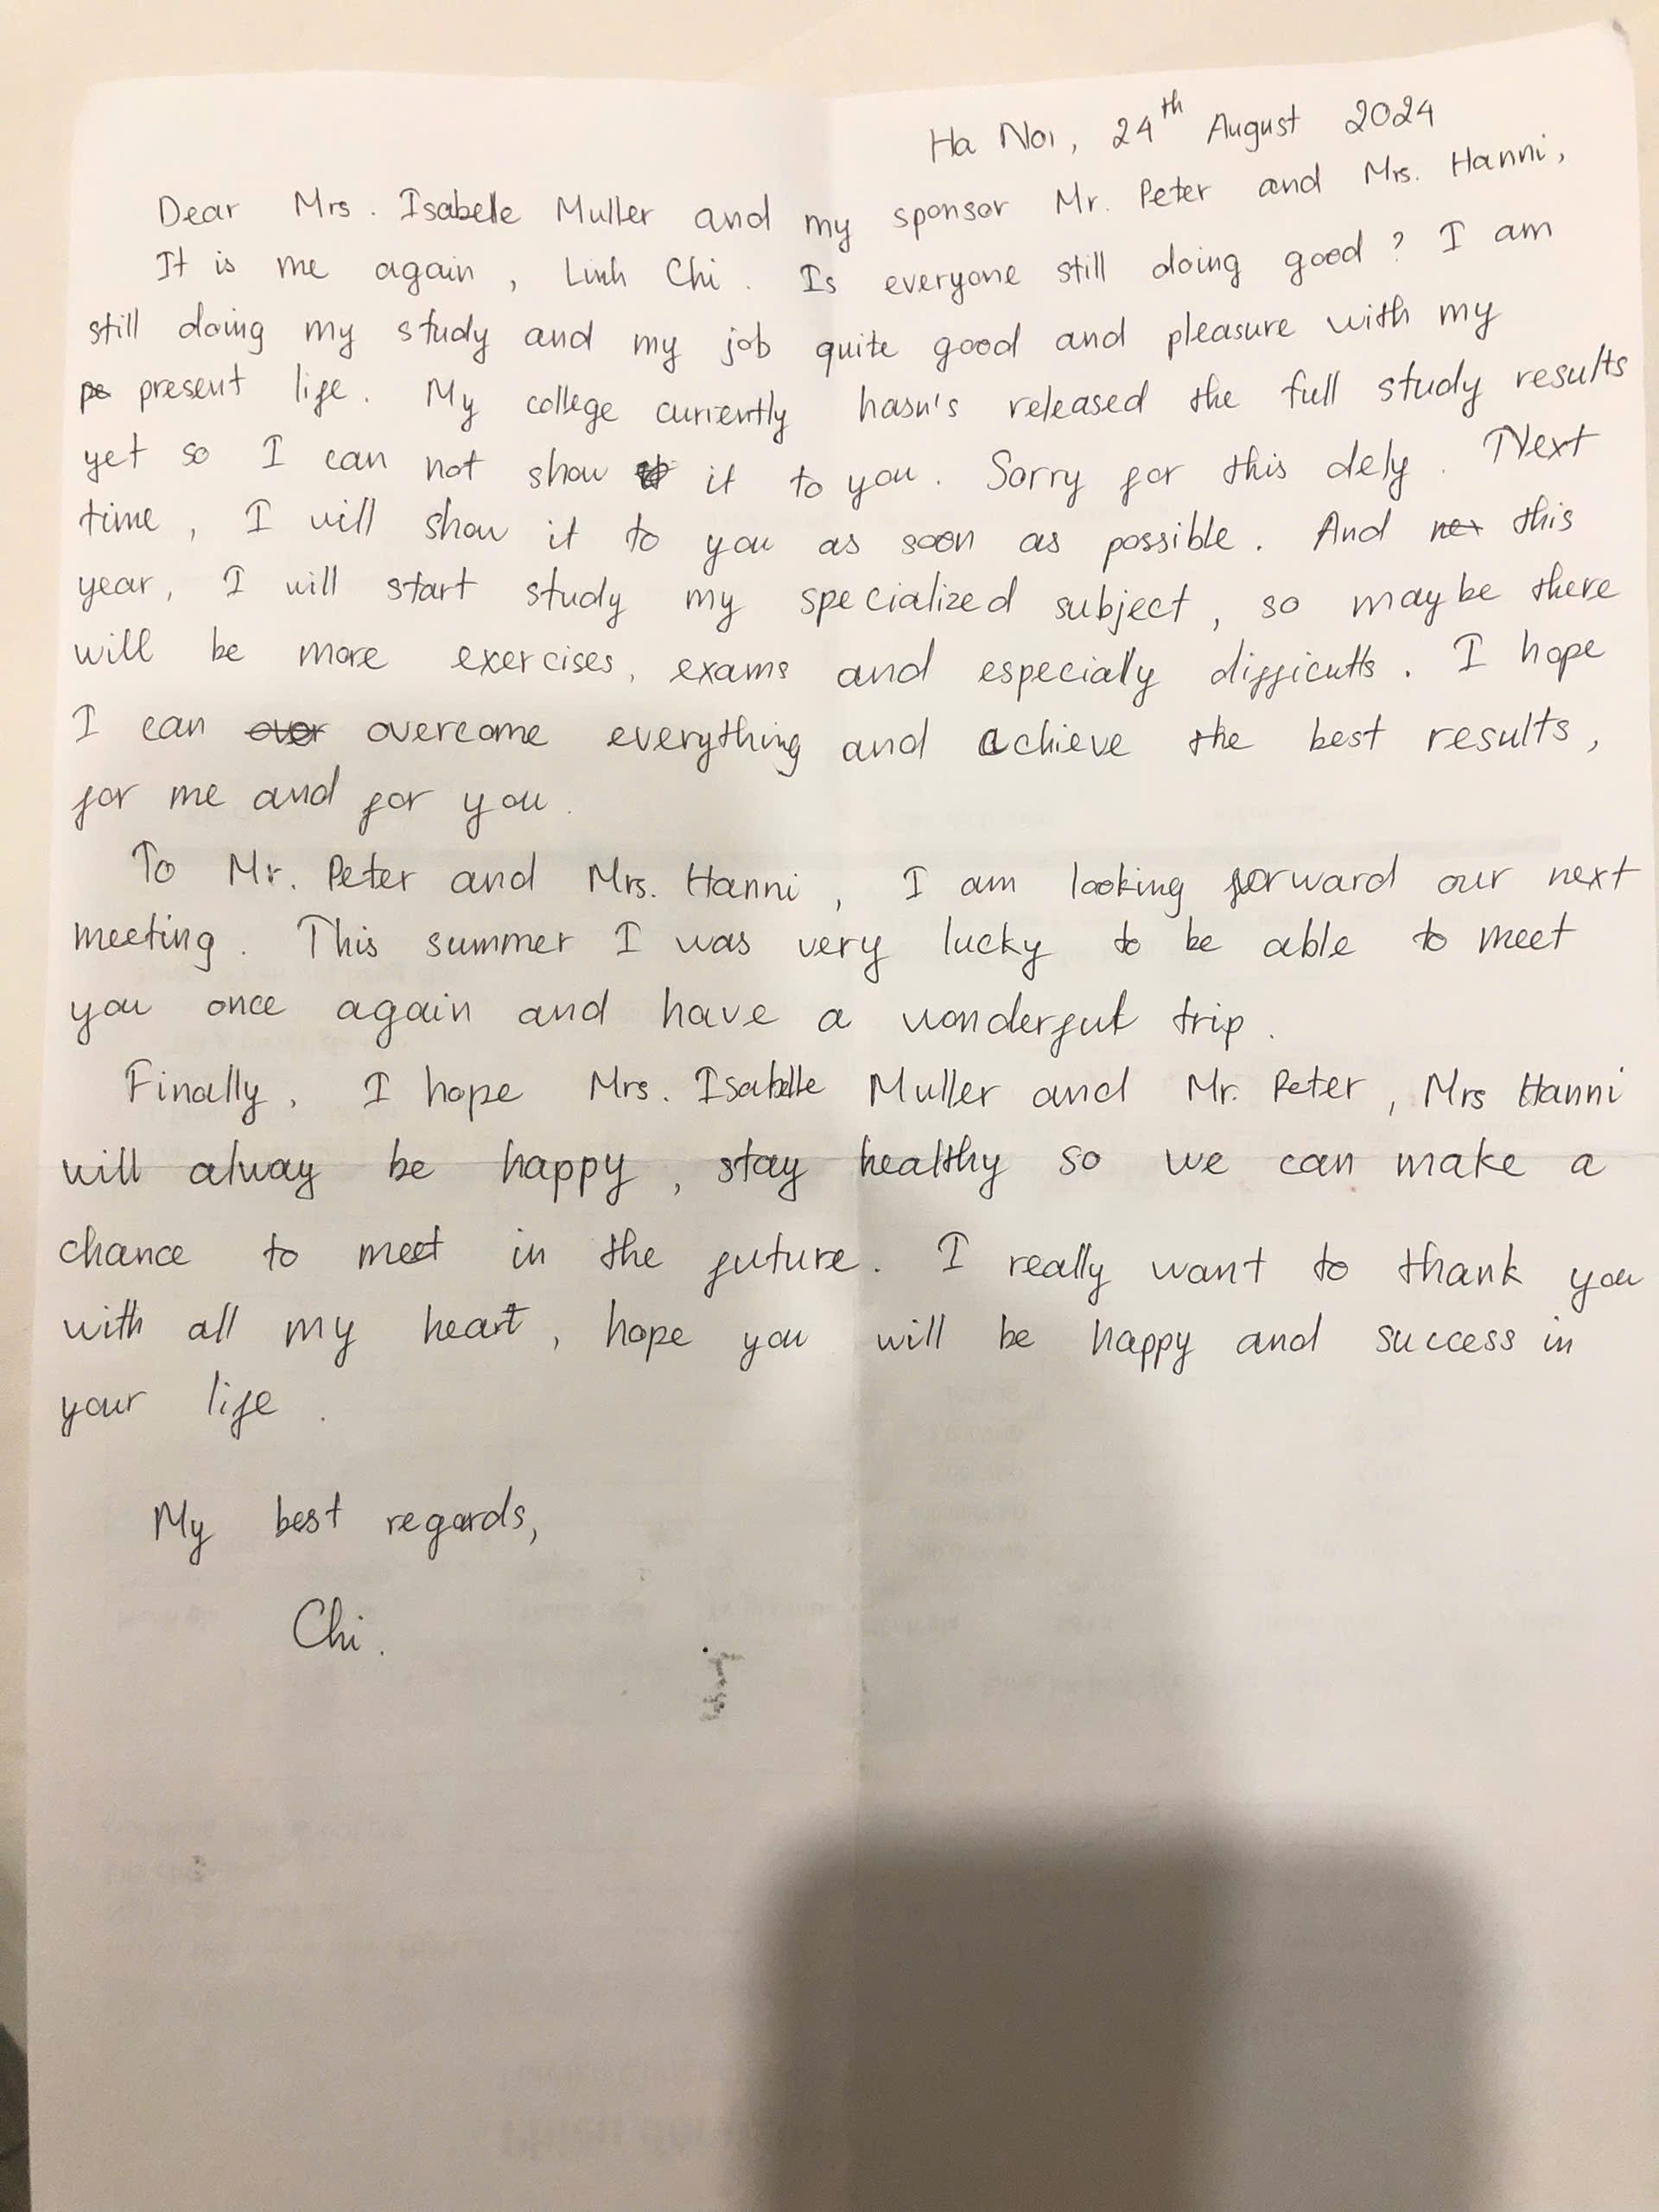 Ha Noi, 24th August 2024
Dear Mrs. Isabelle Muller and my sponsor Mr. Peter and Mrs. Hanni,
It is me again, Linh Chi. Is everyone still doing good? I am
still doing my study and my job quite good and pleasure with my
present life. My college curiently hasn's released the full study results
yet so I can not show it to you. Sorry for this dely. Next
time, I will show it to you as soon as possible. And this
year, I will start study my specialized subject, so maybe there
will be more exercises, exams and especially difficults. I hope
I can overcome everything and achieve the best results,
for me and for you.
To Mr. Peter and Mrs. Hanni, I am looking forward our next
meeting. This summer I was very lucky to be able to meet
you once again and have a wonderful trip.
Finally, I hope Mrs. Isabelle Muller and Mr. Peter, Mrs Hanni
will alway be happy, stay healthy so we can make a
chance to meet in the future. I really want to thank you
with all my heart, hope you will be happy and success in
your life.
My best regards,
Chi.